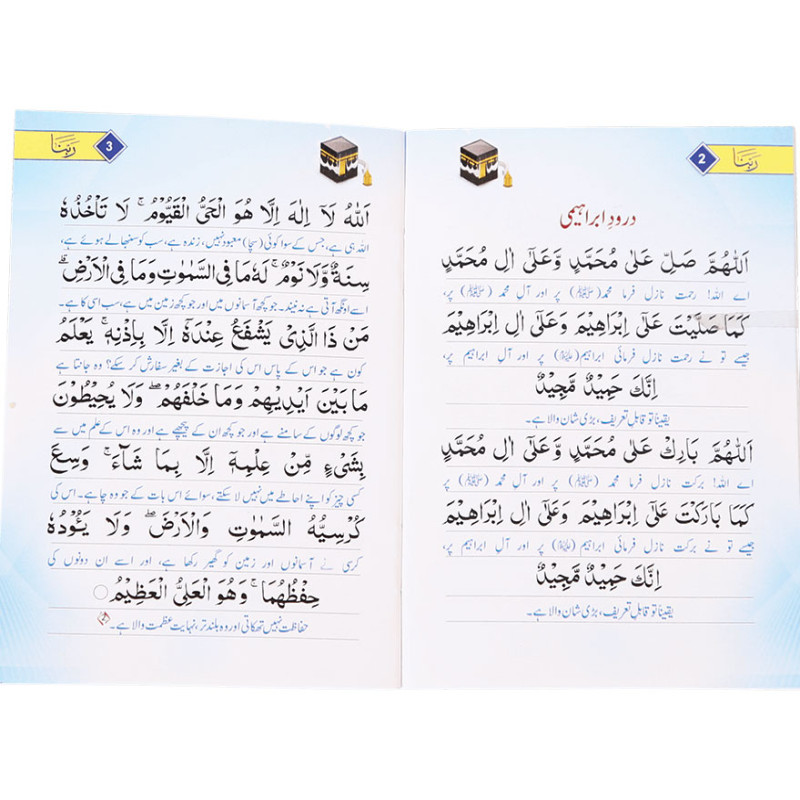 2 رَبَّنَا
درودِ ابراہیمی
اَللّٰهُمَّ صَلِّ عَلٰى مُحَمَّدٍ وَّعَلٰٓى اٰلِ مُحَمَّدٍ
اے اللہ! رحمت نازل فرما محمد(ﷺ) پر اور آلِ محمد (ﷺ) پر،
كَمَا صَلَّيْتَ عَلٰٓى اِبْرَاهِيْمَ وَعَلٰٓى اٰلِ اِبْرَاهِيْمَ
جیسے تو نے رحمت نازل فرمائی ابراہیم(علیہ السلام) پر اور آلِ ابراہیم پر،
اِنَّكَ حَمِيْدٌ مَّجِيْدٌ
یقیناً تو قابلِ تعریف، بڑی شان والا ہے۔
اَللّٰهُمَّ بَارِكْ عَلٰى مُحَمَّدٍ وَّعَلٰٓى اٰلِ مُحَمَّدٍ
اے اللہ! برکت نازل فرما محمد (ﷺ) پر اور آلِ محمد (ﷺ) پر،
كَمَا بَارَكْتَ عَلٰٓى اِبْرَاهِيْمَ وَعَلٰٓى اٰلِ اِبْرَاهِيْمَ
جیسے تو نے برکت نازل فرمائی ابراہیم (علیہ السلام) پر اور آلِ ابراہیم پر،
اِنَّكَ حَمِيْدٌ مَّجِيْدٌ
یقیناً تو قابلِ تعریف، بڑی شان والا ہے۔
3 رَبَّنَا
اَللّٰهُ لَآ اِلٰهَ اِلَّا هُوَ الْحَيُّ الْقَيُّوْمُ ۚ لَا تَاْخُذُهٗ
اللہ ہی ہے، جس کے سوا کوئی (سچا) معبود نہیں، زندہ ہے، سب کو سنبھالے ہوئے ہے،
سِنَةٌ وَّلَا نَوْمٌ ۚ لَهٗ مَا فِى السَّمٰوٰتِ وَمَا فِى الْاَرْضِ ۗ
اسے اونگھ آتی ہے نہ نیند۔ جو کچھ آسمانوں میں اور جو کچھ زمین میں ہے، سب اسی کا ہے۔
مَنْ ذَا الَّذِىْ يَشْفَعُ عِنْدَهٗٓ اِلَّا بِاِذْنِهٖ ۚ يَعْلَمُ
کون ہے جو اس کے پاس اس کی اجازت کے بغیر سفارش کر سکے؟ وہ جانتا ہے
مَا بَيْنَ اَيْدِيْهِمْ وَمَا خَلْفَهُمْ ۖ وَلَا يُحِيْطُوْنَ
جو کچھ لوگوں کے سامنے ہے اور جو کچھ ان کے پیچھے ہے اور وہ اس کے علم میں سے
بِشَىْءٍ مِّنْ عِلْمِهٖٓ اِلَّا بِمَا شَآءَ ۚ وَسِعَ
کسی چیز کو اپنے احاطے میں نہیں لا سکتے، سوائے اس بات کے جو وہ چاہے۔ اس کی
كُرْسِيُّهُ السَّمٰوٰتِ وَالْاَرْضَ ۖ وَلَا يَـُٔوْدُهٗ
کرسی نے آسمانوں اور زمین کو گھیر رکھا ہے، اور اسے ان دونوں کی
حِفْظُهُمَا ۚ وَهُوَ الْعَلِىُّ الْعَظِيْمُ ○
حفاظت نہیں تھکاتی اور وہ بلند تر، نہایت عظمت والا ہے۔